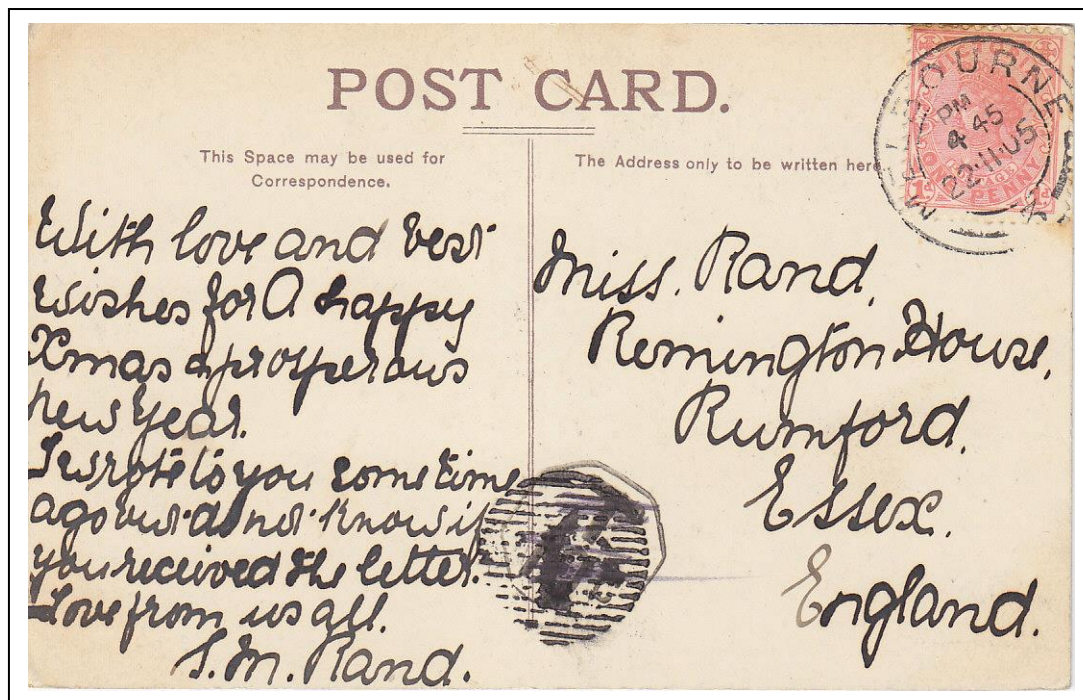 POST CARD.
This Space may be used for
Correspondence.
The Address only to be written here.
MELBOURNE
PM
4 45
22·11·05
ONE PENNY
1d 1d
With love and best
wishes for A happy
Xmas & prosperous
new Year.
I wrote to you some time
ago but do not know if
you received the letter.
Love from us all.
S. M. Rand.
Miss. Rand,
Remington House,
Rumford.
Essex.
England.